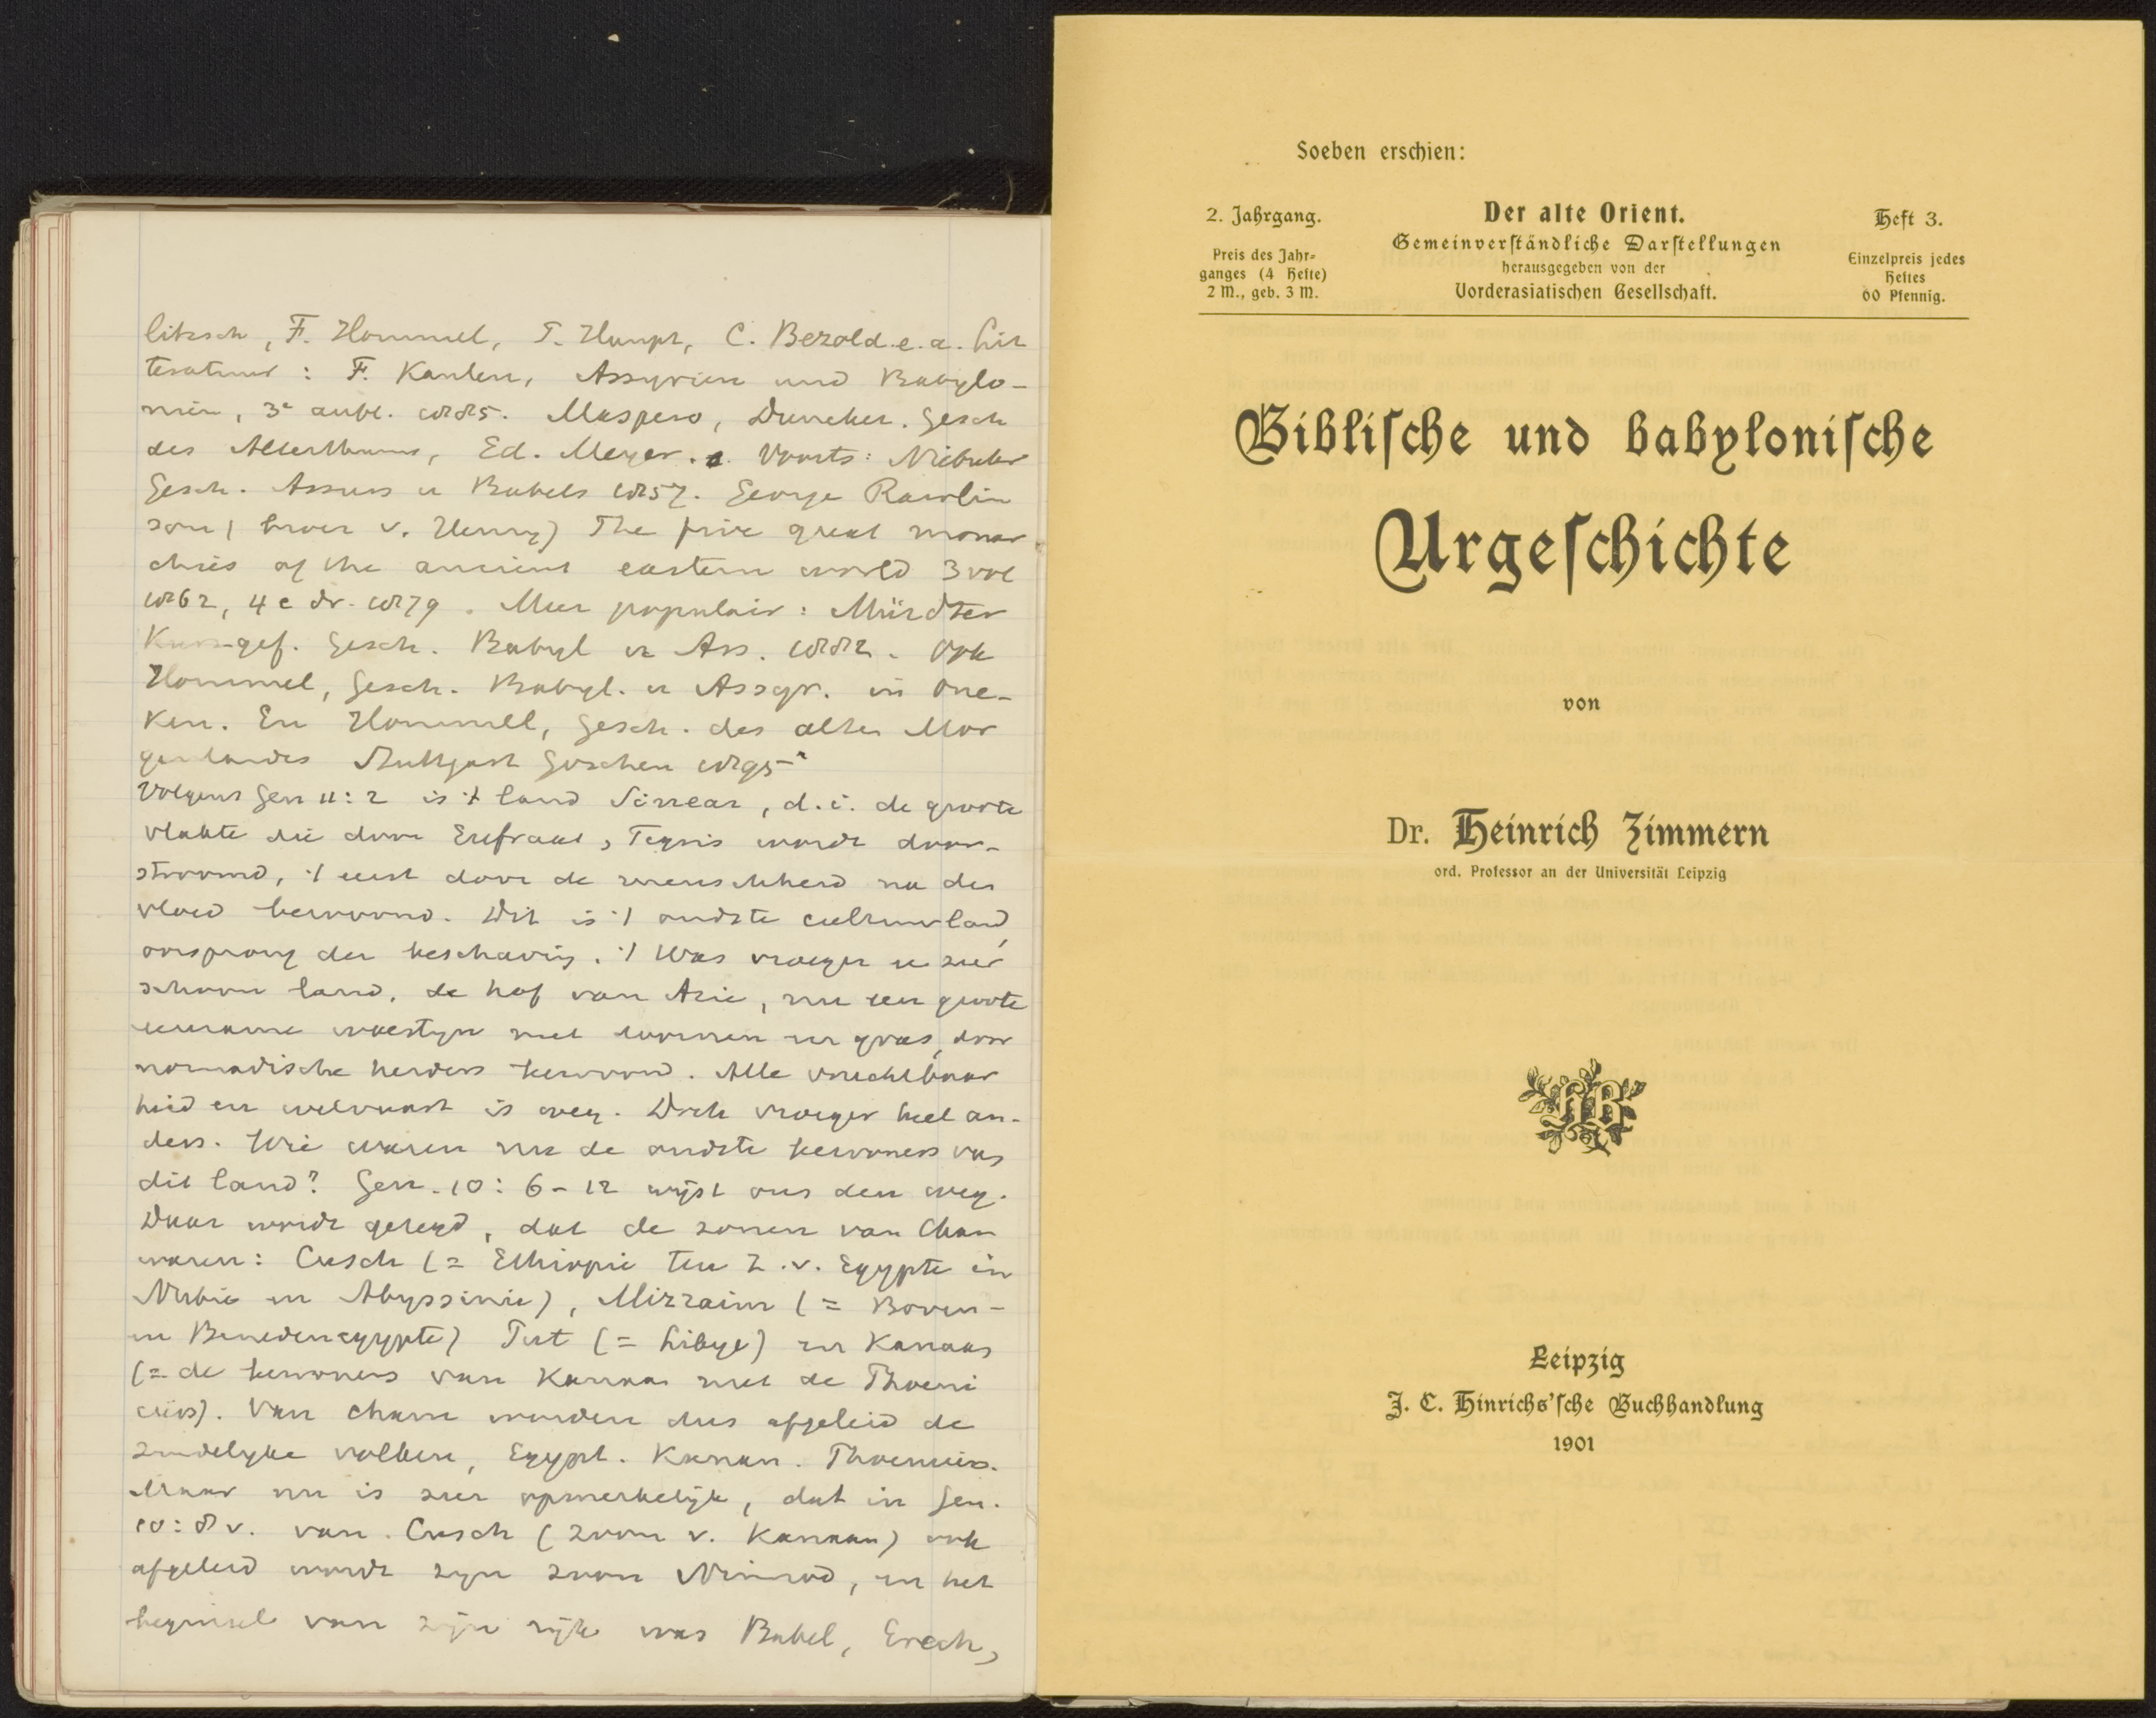 litzsch, F. Hommel, P. Haupt, C. Bezold e.a. Lit
teratuur: F. Kaulen, Assyrien und Babylo-
nien, 3e aufl. 1885. Maspero, Duncker. Gesch
des Alterthums, Ed. Meyer. Voorts: Niebuhr
Gesch. Assurs u Babels 1857. George Rawlin
son (broer v. Henry) The five great monar
chies of the ancient eastern world 3 vol
1862, 4e dr. 1879. Meer populair: Mürdter
Kurzgef. Gesch. Babyl u Ass. 1882. Ook
Hommel, Gesch. Babyl. u Assyr. in One-
ken. En Hommel, Gesch. des alten Mor
genlandes Stuttgart Göschen 1895
Volgens Gen 11:2 is 't land Sinear, d.i. de groote
vlakte die door Eufraat, Tigris wordt door-
stroomd, 't eerst door de menschheid na den
vloed bewoond. Dit is 't oudste cultuurland,
oorsprong der beschaving. 't Was vroeger een zeer
schoon land, de hof van Azie, nu een groote
eenzame woestijn met en gras, door
nomadische herders bewoond. Alle vruchtbaar
heid en welvaart is weg. Doch vroeger heel an-
ders. Wie waren nu de oudste bewoners van
dit land? Gen. 10:6-12 wijst ons den weg.
Daar wordt gezegd, dat de zonen van Cham
waren: Cusch (= Ethiopie ten Z.v. Egypte in
Nubie en Abyssinie), Mizraim (= Boven-
en Benedenegypte) Put (= Libye) en Kanaan
(= de bewoners van Kanaan met de Phoeni
ciërs). Van Cham worden dus afgeleid de
zuidelyke volken, Egypt. Kanaan. Phoeniciers.
Maar nu is zeer opmerkelijk, dat in Gen.
10:8 v. van Cusch (zoon v. Kanaan) ook
afgeleid wordt zyn zoon Nimrod, en het
beginsel van zijn rijk was Babel, Erech,
Soeben erschien:
2. Jahrgang.
Preis des Jahr-
ganges (4 Hefte)
2 M., geb. 3 M.
Der alte Orient.
Gemeinverständliche Darstellungen
herausgegeben von der
Vorderasiatischen Gesellschaft.
Heft 3.
Einzelpreis jedes
Heftes
60 Pfennig.
Biblische und babylonische
Urgeschichte
von
Dr. Heinrich Zimmern
ord. Professor an der Universität Leipzig
HB
Leipzig
J. C. Hinrichs'sche Buchhandlung
1901